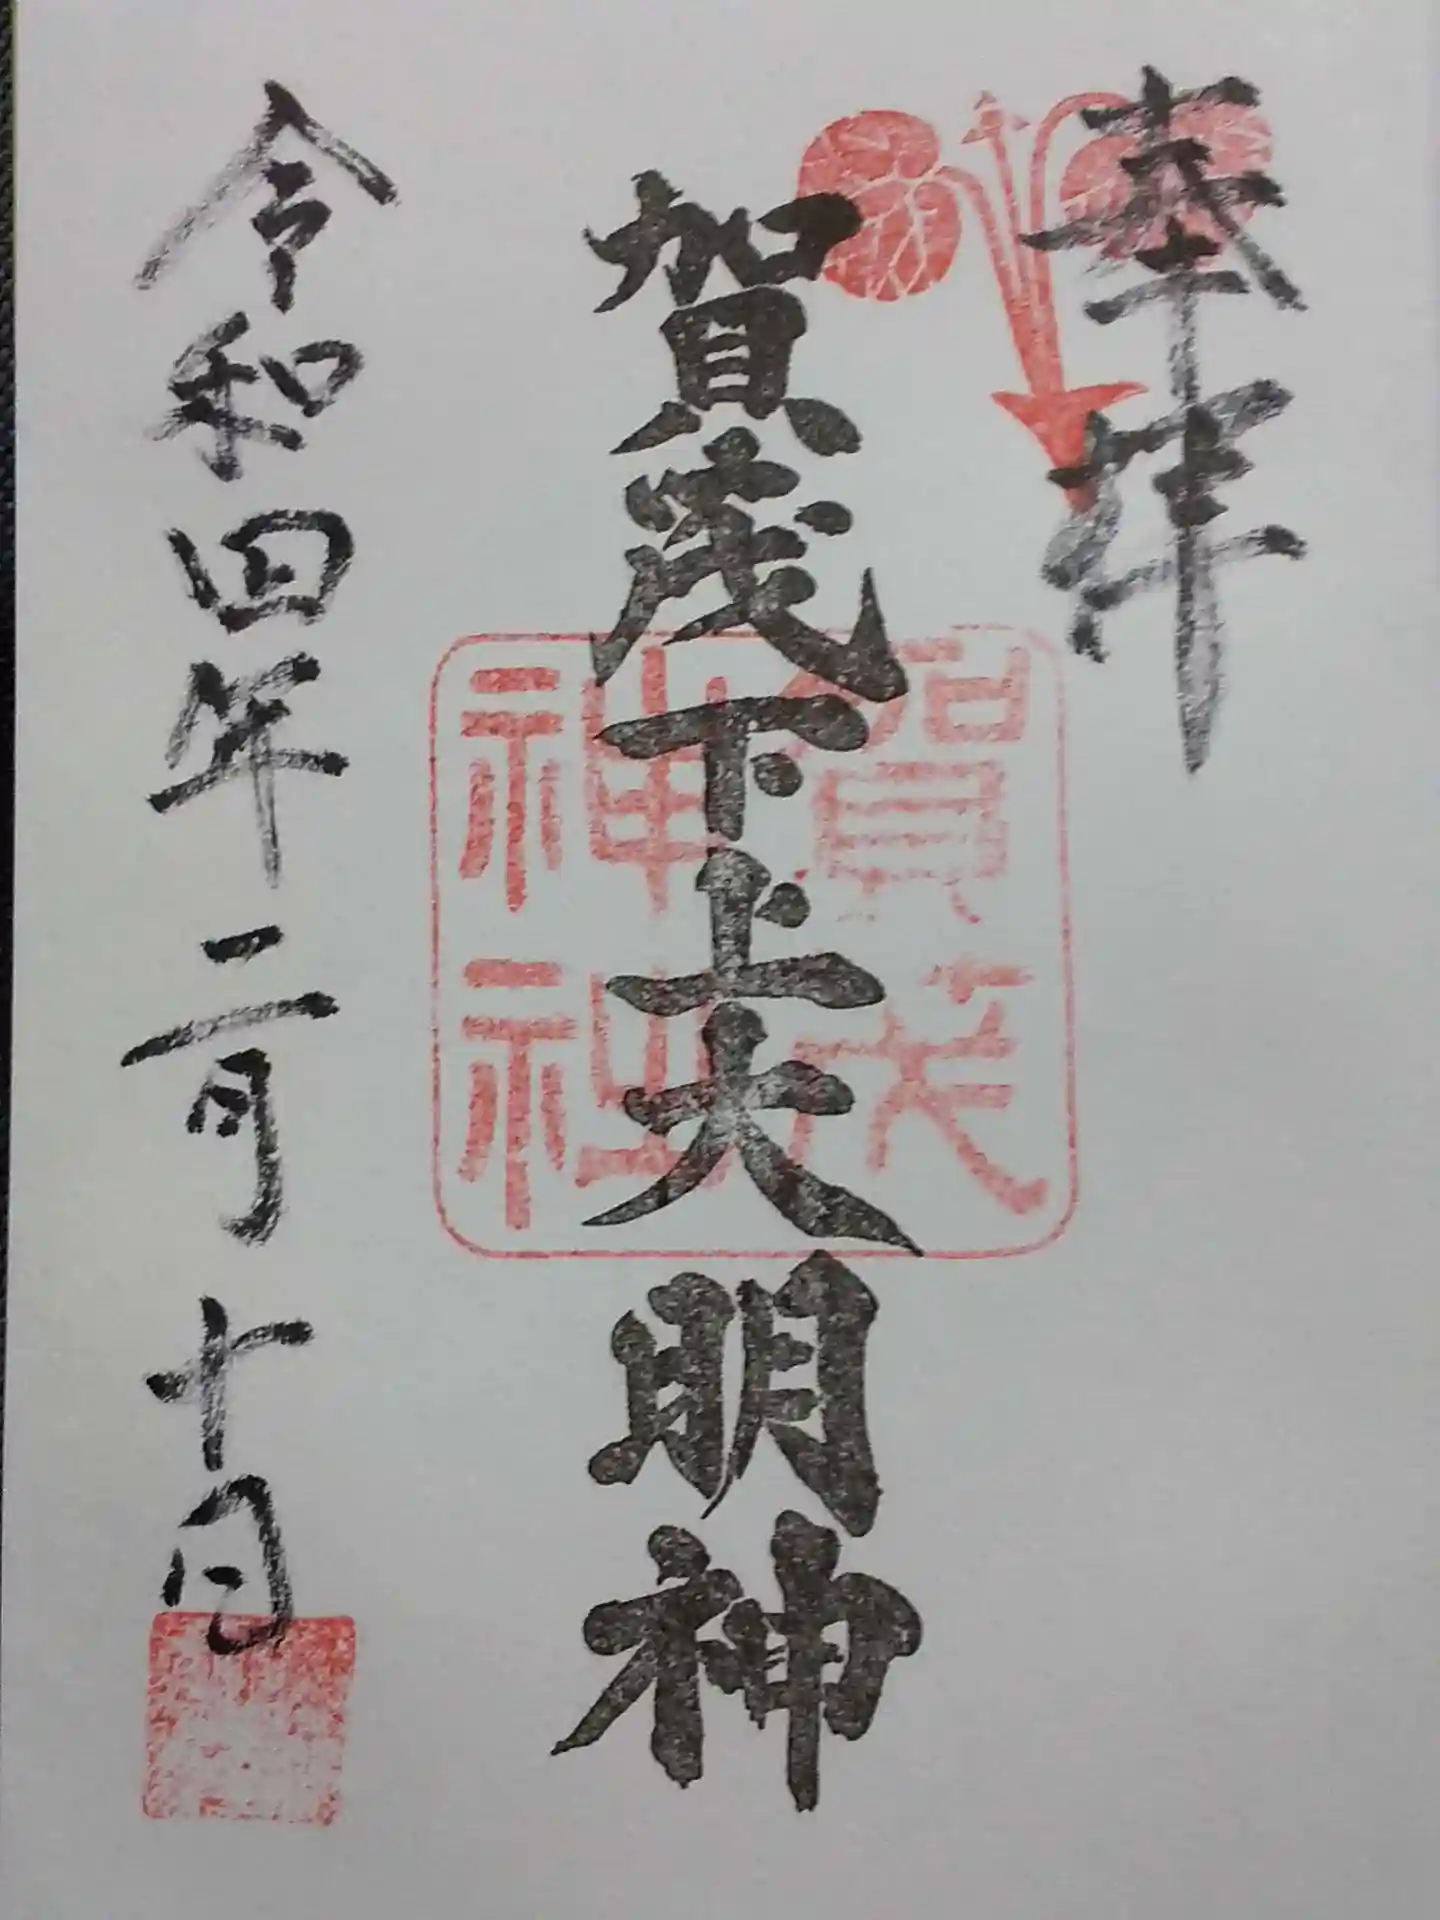 奉拝
賀茂下上大明神
賀茂
神社
令和四年二月十日